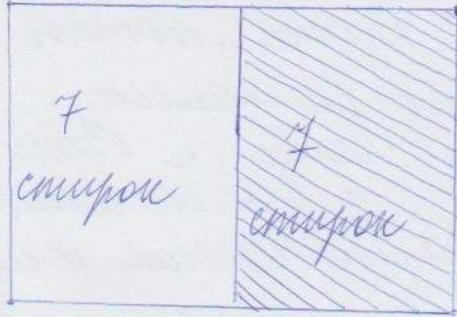 7
стирок
7
стирок